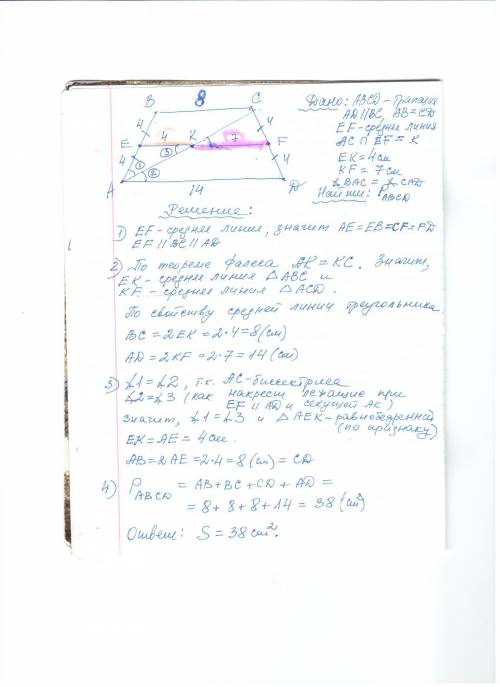 B 8 C
4 4
E 4 K 7 F
3
4 4
1
2
A 14 D
Дано: ABCD - трапеция
AD || BC, AB = CD
EF - средняя линия
AC ∩ EF = K
EK = 4 см
KF = 7 см
∠BAC = ∠CAD
Найти: P ABCD
Решение:
1) EF - средняя линия, значит AE = EB = CF = FD
EF || BC || AD
2) По теореме Фалеса AK = KC. Значит,
EK - средняя линия △ABC и
KF - средняя линия △ACD.
По свойству средней линии треугольника
BC = 2EK = 2·4 = 8 (см)
AD = 2KF = 2·7 = 14 (см)
3) ∠1 = ∠2, т.к. AC - биссектриса
∠2 = ∠3 (как накрест лежащие при
EF || AD и секущей AK)
Значит, ∠1 = ∠3 и △AEK - равнобедренный
(по признаку)
EK = AE = 4 см.
AB = 2AE = 2·4 = 8 (см) = CD
4) P ABCD = AB + BC + CD + AD =
= 8 + 8 + 8 + 14 = 38 (см)
Ответ: S = 38 см².